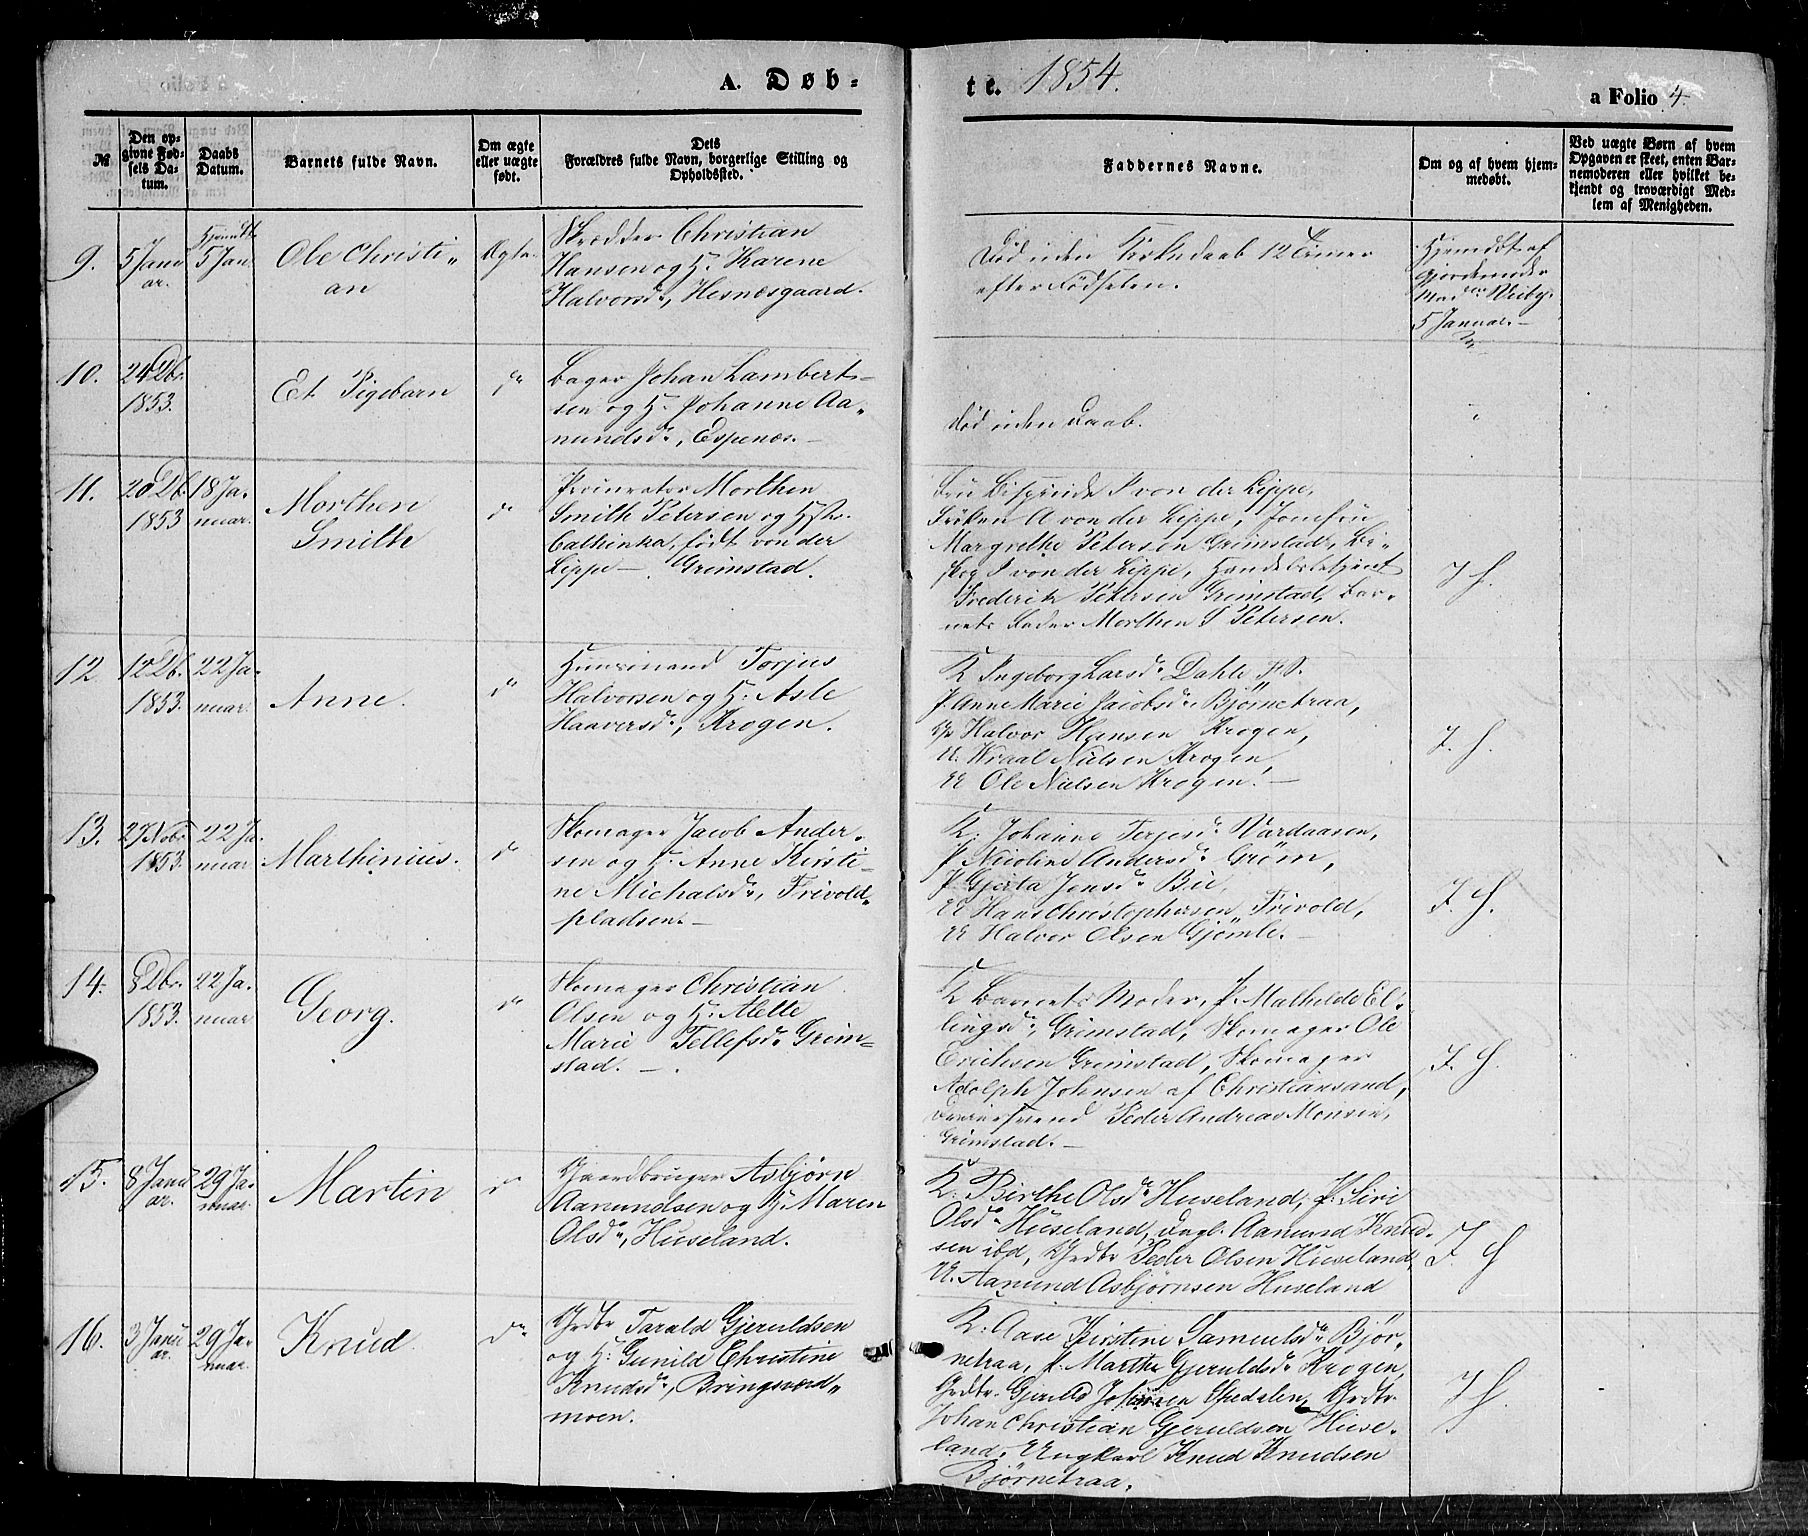 A. Døb-
te. 1854.
a Folio 4.
№
Den op-
givne Fød-
sels Da-
tum.
Daabs
Datum.
Barnets fulde Navn.
Om ægte
eller uægte
født.
Dets
Forældres fulde Navn, borgerlige Stilling og
Opholdssted.
Faddernes Navne.
Om og af hvem hjem-
medøbt.
Ved uægte Børn af hvem
Opgaven er skeet, enten Bar-
nemoderen eller hvilket be-
kjendt og troværdigt Med-
lem af Menigheden.
9.
5 Janu
ar.
Hjemdbt
5 Jan.
Ole Christi„
an
Ægte
Skrædder Christian
Hansen og H. Karene
Halvorsd., Hesnesgaard.
Død uden Kirkedaab 12 Timer
efter Fødselen.
Hjemdøbt af
Gjordemoder
Mad. Weiby
5 Januar.
10.
24 Dbr.
1853.
Et Pigebarn
do
Bager Johan Lamberts-
sen og H. Johanne Aa„
nundsd., Espenes.
Død uden Daab.
11.
20 Db.
1853
18 Ja-
nuar.
Morthen
Smith
do
Procurator Morthen
Smith Petersen og Hstr.
Cathinka, født von der
Lippe — Grimstad.
Fru Bispinde J von der Lippe,
Frøken A von der Lippe, Jomfru
Margrethe Petersen Grimstad, Bi-
skop J von der Lippe, Handelsbetjent
Frederik Petersen Grimstad, Bar-
nets Fader Morthen S Petersen.
J H.
12
12 Db.
1853.
22 Ja-
nuar.
Anne.
do
Huusmand Torjus
Halvorsen og H. Asle
Haaversd., Krogen.
K Ingeborg Larsd. Dahle F. S.
P. Anne Marie Jacobsd. Bjørnetraa,
Halvor Hansen Krogen,
U. Wraal Nielsen Krogen,
U Ole Nielsen Krogen. —
J. H.
13.
27 Nobr
1853.
22 Ja-
nuar
Marthinius.
do
Skomager Jacob Ander-
sen og H. Anne Kirsti-
ne Michalsd., Frivold-
pladsen. —
K. Johanne Terjesd. Vardaasen,
P Nicoline Andersd. Grøm,
P Gjerta Jensd. Bie,
U Hans Christophersen Frivold,
U Halvor Olsen Gjømle. —
J. H.
14.
8 Dbr.
1853.
22 Ja-
nuar
Georg.
do
Skomager Christian
Olsen og H. Alette
Marie Tellefsd. Grim-
stad. —
K Barnets Moder, P. Mathilde El-
lingsd. Grimstad, Skomager Ole
Erichsen Grimstad, Skomager
Adolph Johnsen af Christiansand,
Peder Andreas Monsen,
Grimstad. —
J. H.
15.
8 Janu
ar.
29 Ja-
nuar.
Martin
do
Gaardbruger Asbjørn
Aanundsen og H. Maren
Olsd., Huseland.
K. Birthe Olsd. Huseland, P. Siri
Olsd. Huseland, Aanund Knud-
sen ibd, Grdbr Peder Olsen Huseland,
U. Aanund Asbjørnsen Huseland
J. H
16.
3 Janu
ar.
29 Ja-
nuar.
Knud
do
Grdbr Tarald Gjeruldsen
og H. Gunild Christine
Knudsd., Bringsværd„
moen.
K. Aase Kirstine Samuelsd. Bjør„
netraa, P. Marthe Gjeruldsd. Krogen,
Grdbr. Gjeruld Spedalen, Grdbr
Johan Christian Gjeruldsen Huse-
land. Ungkarl Knud Knudsen
Bjørnetraa.
J H.